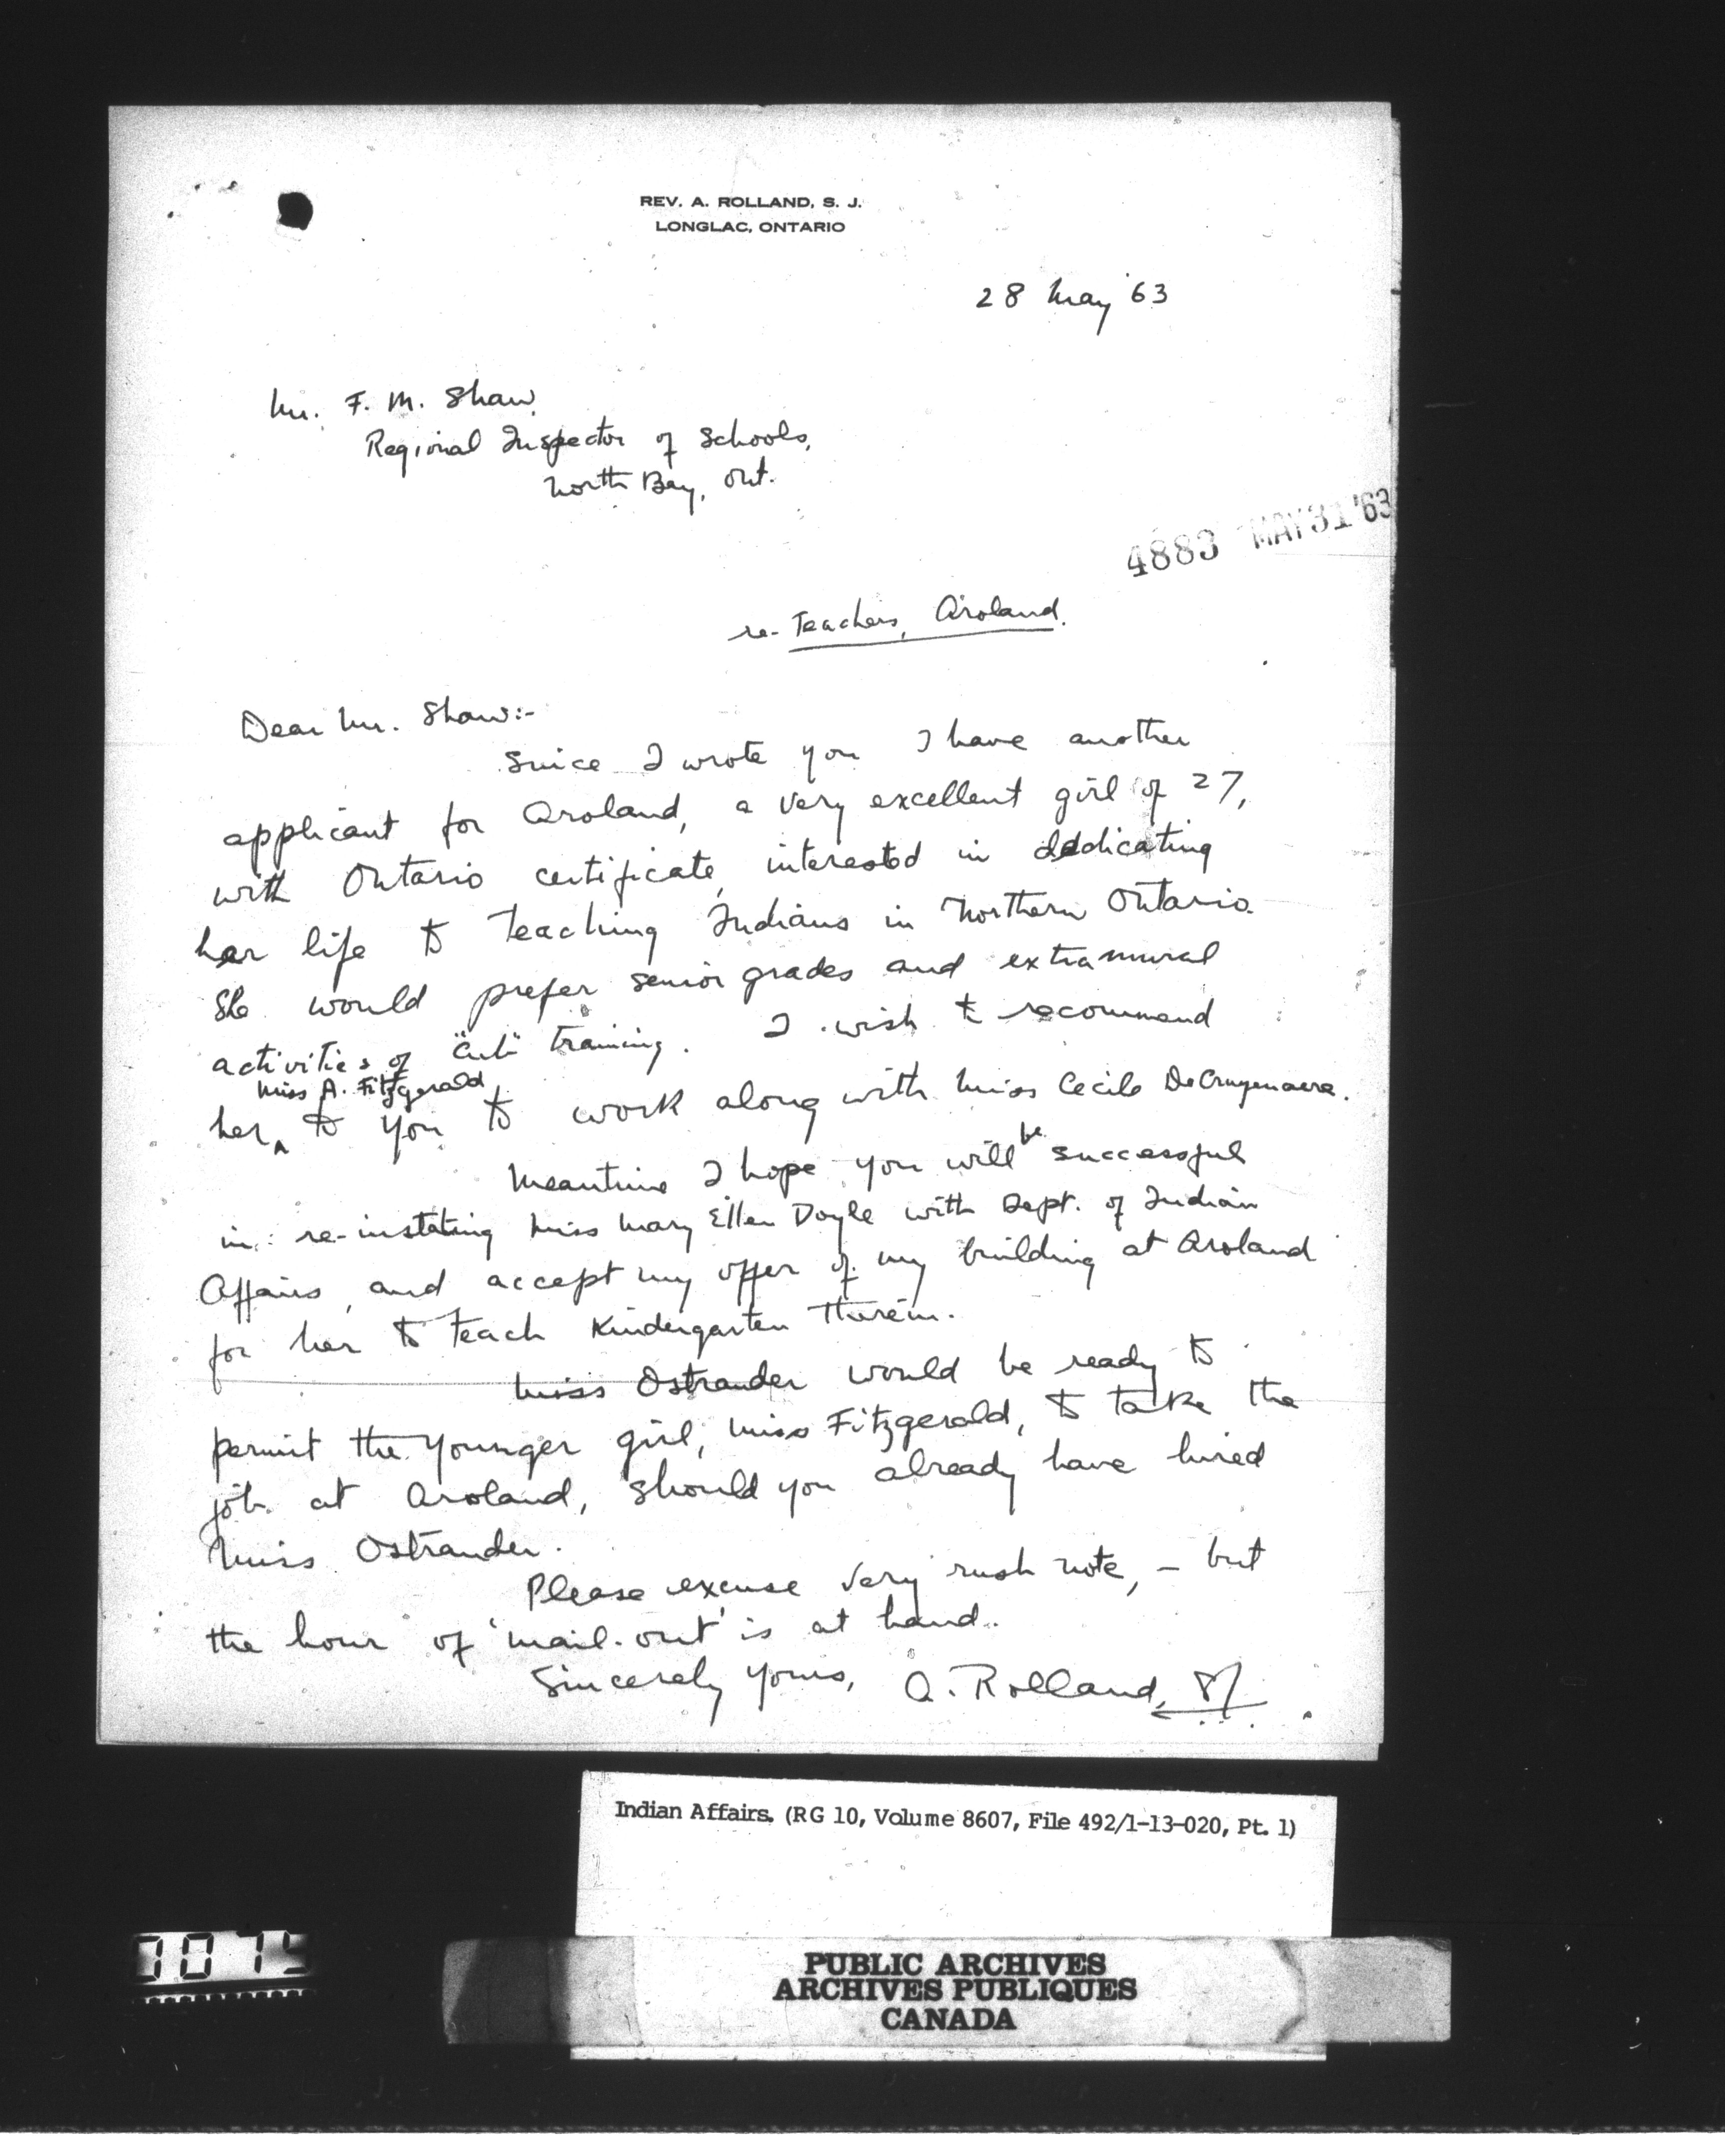 REV. A. ROLLAND, S. J.
LONGLAC, ONTARIO
28 May '63
Mr. F. M. Shaw,
Regional Inspector of Schools,
North Bay, Ont.
4883 MAY 31 '63
re- Teachers, Aroland.
Dear Mr. Shaw:-
Since I wrote you I have another
applicant for Aroland, a very excellent girl of 27,
with Ontario certificate, interested in dedicating
her life to teaching Indians in Northern Ontario.
She would prefer senior grades and extramural
activities of "Cub" training. I wish to recommend
Miss A. Fitzgerald
her to you to work along with Miss Cecile DeCruyenaere.
Meantime I hope you will be successful
in re-instating Miss Mary Ellen Doyle with Dept. of Indian
Affairs, and accept my offer of my building at Aroland
for her to teach Kindergarten therein.
Miss Ostrander would be ready to
permit the younger girl, Miss Fitzgerald, to take the
job at Aroland, should you already have hired
Miss Ostrander.
Please excuse very rush note, - but
the hour of 'mail-out' is at hand.
Sincerely yours, A. Rolland, SJ
Indian Affairs. (RG 10, Volume 8607, File 492/1-13-020, Pt. 1)
PUBLIC ARCHIVES
ARCHIVES PUBLIQUES
CANADA